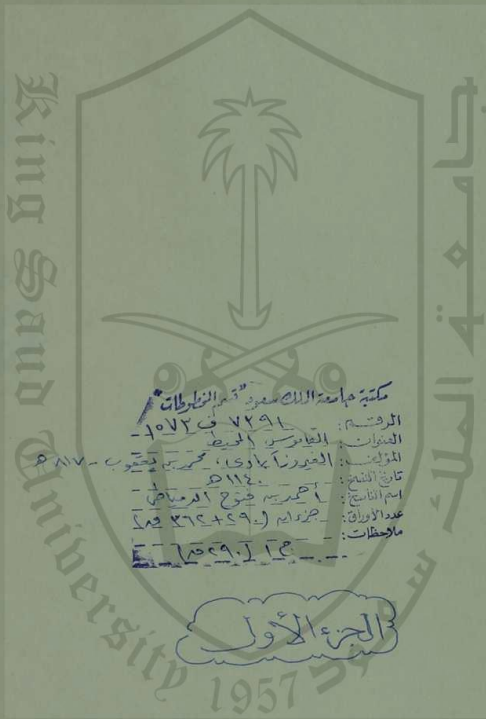 King Saud University
1957
مكتبة جامعة الملك سعود "قسم المخطوطات"
الرقم: ٧٢٩١ ف ١٥٧٣
العنوان: القاموس المحيط
المؤلف: الفيروزآبادي، محمد بن يعقوب - ٨١٧ هـ
تاريخ النسخ: ١١٤٠ هـ
اسم الناسخ: أحمد بن فتوح الدمياطي
عدد الأوراق: جزءان (٢٩٠ + ٣٦٢ ق)
ملاحظات:
ج ١ (٢٩٠ ق)
الجزء الأول